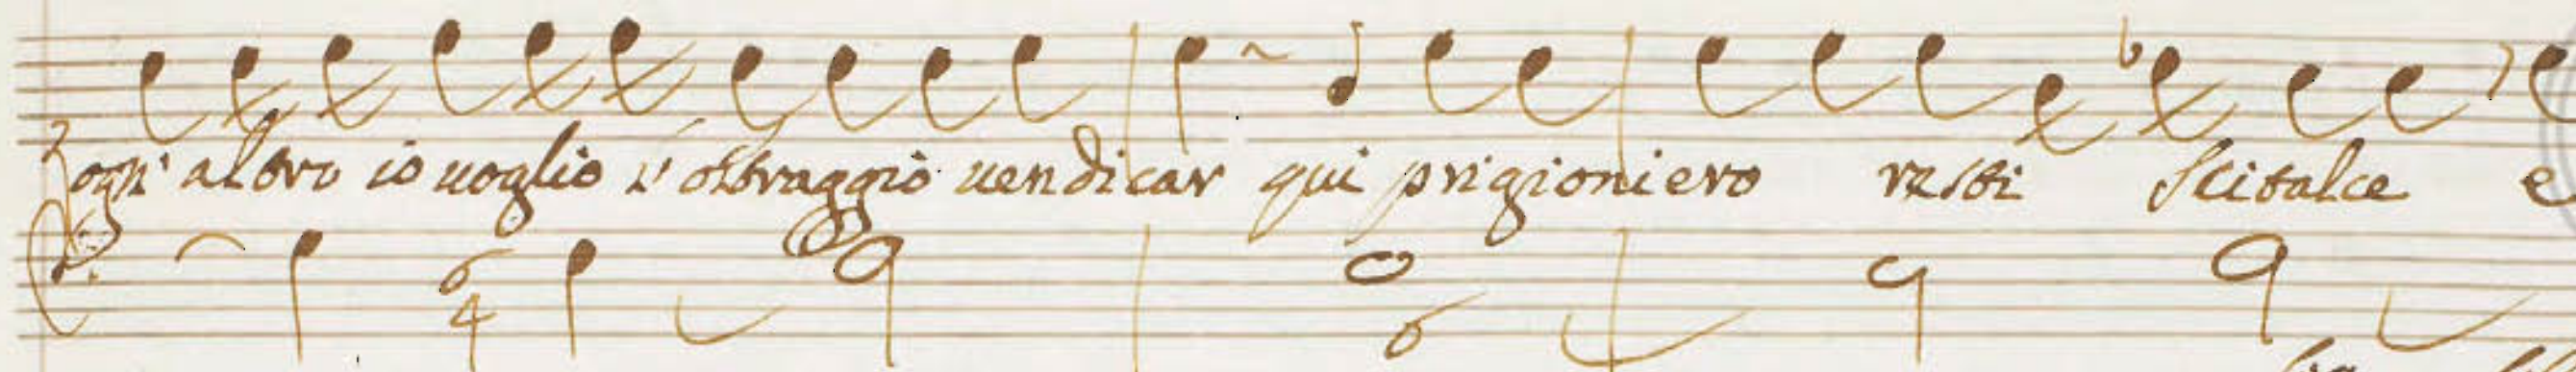 ogn' altro io uoglio l' oltraggio uendicar qui prigioniero resti Scitalce e
6
4
6